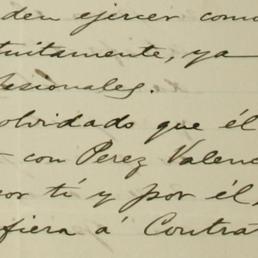 den ejercer como
tuitamente, ya
esionales.
olvidado que él
con Perez Valenc
por tí y por él,
fiera á Contrat